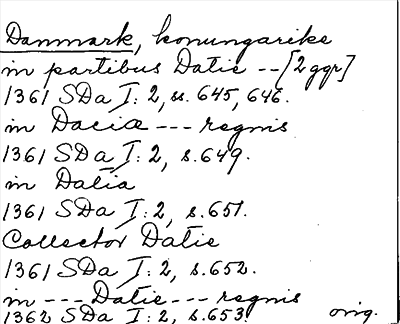 Danmark, konungarike
in partibus Datie -- [2 ggr]
1361 SDa I: 2, ss. 645, 646.
in Dacia --- regnis
1361 SDa I: 2, s. 649.
in Datia
1361 SDa I: 2, s. 651.
Collector Datie
1361 SDa I: 2, s. 652.
in --- Datie --- regnis
1362 SDa I: 2, s. 653. orig.